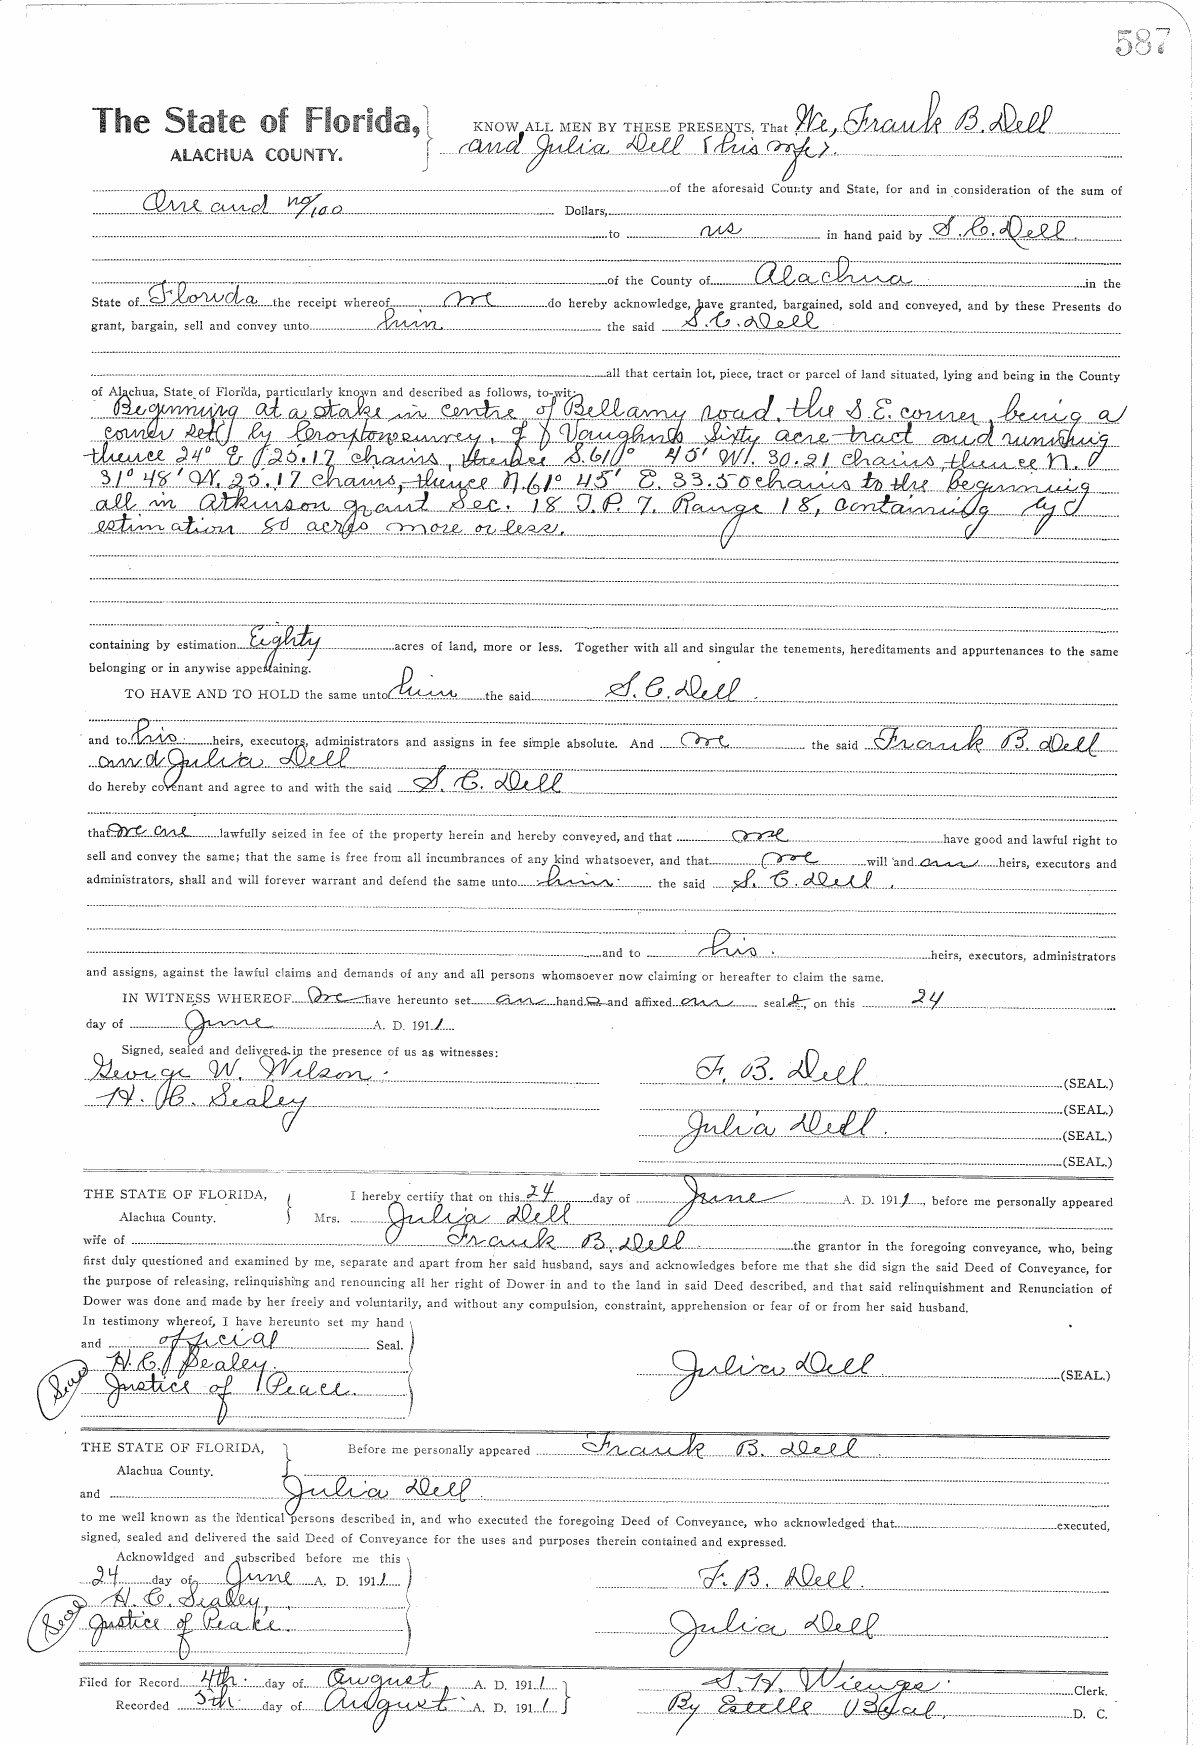 587
The State of Florida, KNOW ALL MEN BY THESE PRESENTS, That We, Frank B. Dell
ALACHUA COUNTY. and Julia Dell (his wife).
of the aforesaid County and State, for and in consideration of the sum of
One and no/100 Dollars,
to us in hand paid by S. C. Dell.
of the County of Alachua in the
State of Florida the receipt whereof we do hereby acknowledge, have granted, bargained, sold and conveyed, and by these Presents do
grant, bargain, sell and convey unto him the said S. C. Dell
all that certain lot, piece, tract or parcel of land situated, lying and being in the County
of Alachua, State of Florida, particularly known and described as follows, to-wit:
Beginning at a stake in centre of Bellamy road, the S. E. corner, being a
corner set by Croxton survey, of Vaughns Sixty acre tract and running
thence 24° E 25.17 chains, thence S. 61° 45' W. 30.21 chains, thence N.
31° 48' W. 25.17 chains, thence N. 61° 45' E. 33.50 chains to the beginning
all in Atkinson grant Sec. 18 T. P. 7. Range 18, containing by
estimation 80 acres more or less.
containing by estimation Eighty acres of land, more or less. Together with all and singular the tenements, hereditaments and appurtenances to the same
belonging or in anywise appertaining.
TO HAVE AND TO HOLD the same unto him the said S. C. Dell.
and to his heirs, executors, administrators and assigns in fee simple absolute. And we the said Frank B. Dell
and Julia Dell
do hereby covenant and agree to and with the said S. C. Dell
that we are lawfully seized in fee of the property herein and hereby conveyed, and that we have good and lawful right to
sell and convey the same; that the same is free from all incumbrances of any kind whatsoever, and that we will and our heirs, executors and
administrators, shall and will forever warrant and defend the same unto him the said S. C. Dell.
and to his heirs, executors, administrators
and assigns, against the lawful claims and demands of any and all persons whomsoever now claiming or hereafter to claim the same.
IN WITNESS WHEREOF We have hereunto set our hands and affixed our seals, on this 24
day of June A. D. 1911
Signed, sealed and delivered in the presence of us as witnesses:
George W. Wilson. F. B. Dell (SEAL.)
H. C. Sealey (SEAL.)
Julia Dell. (SEAL.)
(SEAL.)
THE STATE OF FLORIDA, I hereby certify that on this 24 day of June A. D. 1911, before me personally appeared
Alachua County. Mrs. Julia Dell
wife of Frank B. Dell the grantor in the foregoing conveyance, who, being
first duly questioned and examined by me, separate and apart from her said husband, says and acknowledges before me that she did sign the said Deed of Conveyance, for
the purpose of releasing, relinquishing and renouncing all her right of Dower in and to the land in said Deed described, and that said relinquishment and Renunciation of
Dower was done and made by her freely and voluntarily, and without any compulsion, constraint, apprehension or fear of or from her said husband.
In testimony whereof, I have hereunto set my hand
and official Seal.
H. C. Sealey. Julia Dell (SEAL.)
Seal Justice of Peace.
THE STATE OF FLORIDA, Before me personally appeared Frank B. Dell
Alachua County.
and Julia Dell.
to me well known as the identical persons described in, and who executed the foregoing Deed of Conveyance, who acknowledged that executed,
signed, sealed and delivered the said Deed of Conveyance for the uses and purposes therein contained and expressed.
Acknowldged and subscribed before me this
24 day of June A. D. 1911 F. B. Dell.
H. C. Sealey,
Seal Justice of Peace. Julia Dell
Filed for Record 4th. day of August, A. D. 1911 S. H. Wienges. Clerk.
Recorded 5th. day of August A. D. 1911 By Estelle D. C.